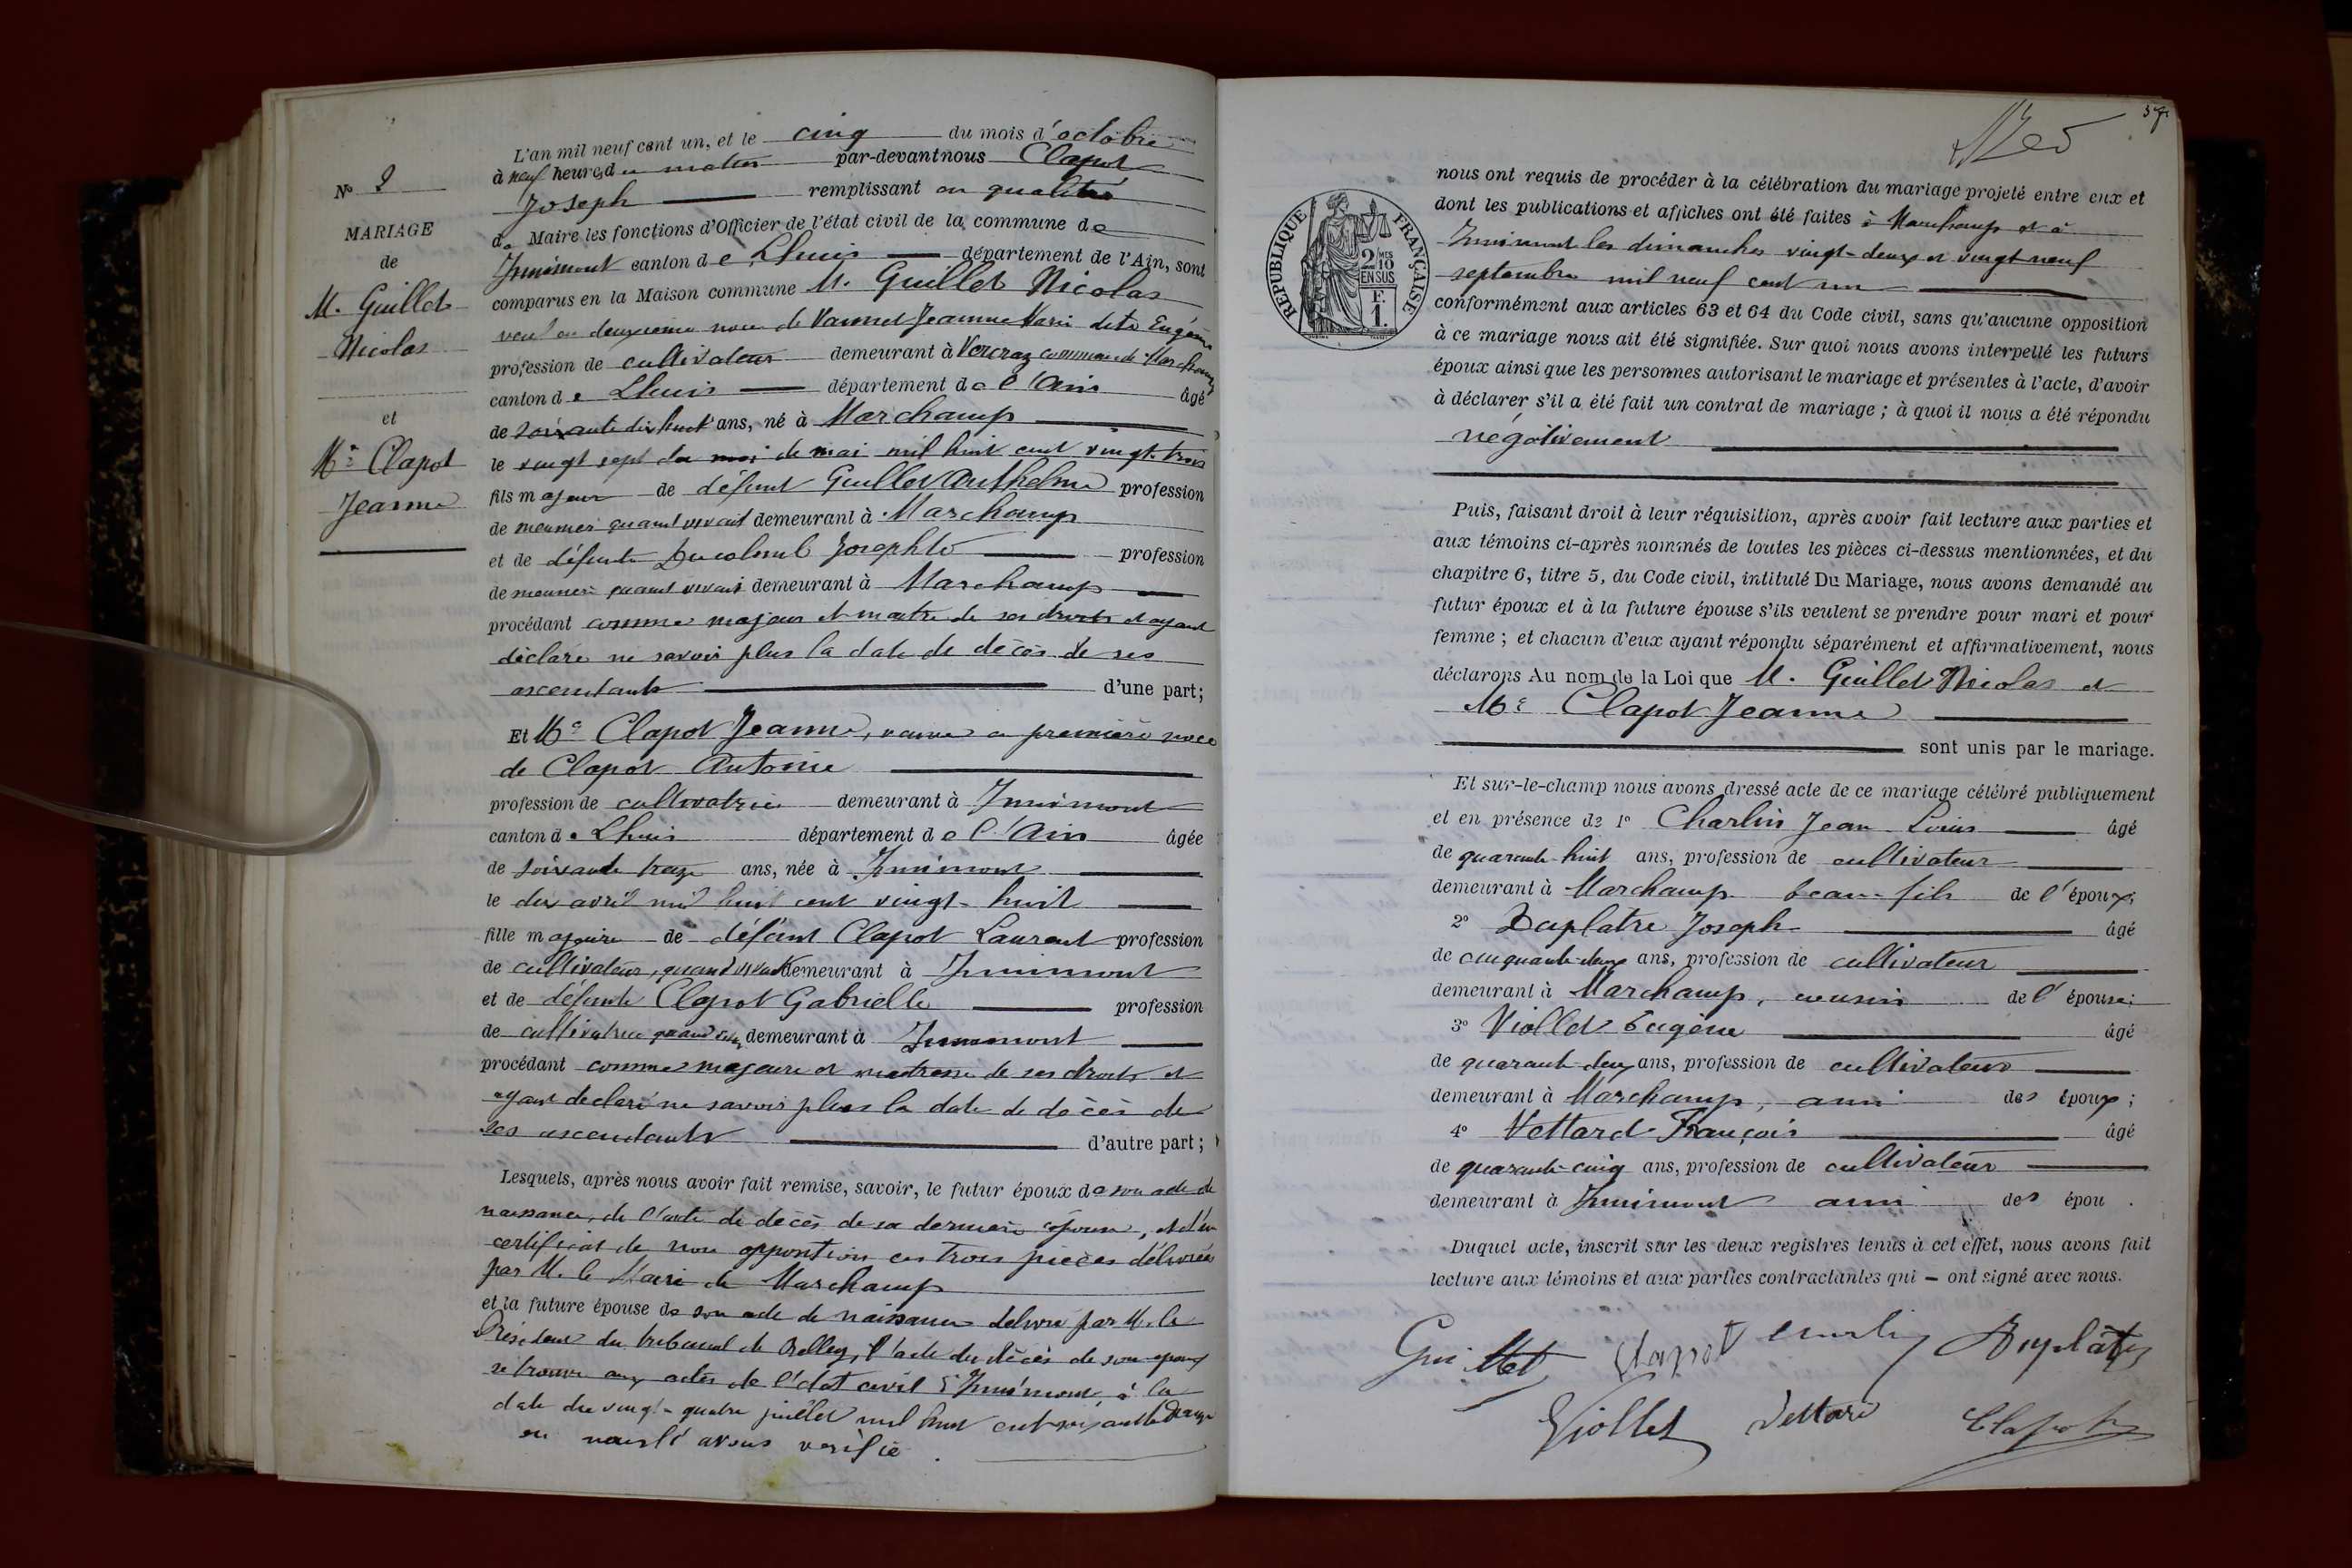 N° 2
MARIAGE
de
M. Guillet
Nicolas
et
Me Clapot
Jeanne
L'an mil neuf cent un, et le cinq du mois d'octobre
à neuf heures du matin par-devant nous Clapot
Joseph remplissant en qualité
de Maire les fonctions d'Officier de l'état civil de la commune de
Innimont canton de Lhuis département de l'Ain, sont
comparus en la Maison commune M. Guillet Nicolas
veuf en deuxième noce de Jeanne Marie dite Eugénie
profession de cultivateur demeurant à Vercraz commune de Marchamp
canton de Lhuis département de l'Ain âgé
de soixante dix huit ans, né à Marchamp
le vingt sept du moi de mai mil huit cent vingt-trois
fils majeur de défunt Guillet Anthelme profession
de meunier quand vivait demeurant à Marchamp
et de défunte Josephte profession
de meunière quand vivait demeurant à Marchamp
procédant comme majeur et maitre de ses droits et ayant
déclaré ne savoir plus la date de décès de ses
ascendants d'une part;
Et Me Clapot Jeanne, veuve en première noce
de Clapot Antoine
profession de cultivatrice demeurant à Innimont
canton de Lhuis département de l'Ain âgée
de soixante treize ans, née à Innimont
le dix avril mil huit cent vingt-huit
fille majeure de défunt Clapot Laurent profession
de cultivateur, quand vivait demeurant à Innimont
et de défunte Clapot Gabrielle profession
de cultivatrice quand demeurant à Innimont
procédant comme majeure et maitresse de ses droits et
ayant déclaré ne savoir plus la date de décès de
ses ascendants d'autre part;
Lesquels, après nous avoir fait remise, savoir, le futur époux de son acte de
naissance, de l'acte de décès de sa dernière épouse, et d'un
certificat de non opposition ces trois pièces délivrées
par M. le Maire de Marchamp
et la future épouse de son acte de naissance délivré par M. le
Président du tribunal de Belley, l'acte de décès de son époux
se trouve aux actes de l'état civil d'Innimont à la
date du vingt-quatre juillet mil huit cent soixante
où nous l'avons vérifié.
57
nous ont requis de procéder à la célébration du mariage projeté entre eux et
dont les publications et affiches ont été faites à Marchamp et à
Innimont les dimanches vingt-deux et vingt neuf
septembre mil neuf cent un
REPUBLIQUE FRANÇAISE
2 MES
10
EN SUS
F.
1.
conformément aux articles 63 et 64 du Code civil, sans qu'aucune opposition
à ce mariage nous ait été signifiée. Sur quoi nous avons interpellé les futurs
époux ainsi que les personnes autorisant le mariage et présentes à l'acte, d'avoir
à déclarer s'il a été fait un contrat de mariage; à quoi il nous a été répondu
négativement
Puis, faisant droit à leur réquisition, après avoir fait lecture aux parties et
aux témoins ci-après nommés de toutes les pièces ci-dessus mentionnées, et du
chapitre 6, titre 5, du Code civil, intitulé Du Mariage, nous avons demandé au
futur époux et à la future épouse s'ils veulent se prendre pour mari et pour
femme; et chacun d'eux ayant répondu séparément et affirmativement, nous
déclarons Au nom de la Loi que M. Guillet Nicolas et
Me Clapot Jeanne
sont unis par le mariage.
Et sur-le-champ nous avons dressé acte de ce mariage célébré publiquement
et en présence de 1° Charlin Jean-Louis âgé
de quarante-huit ans, profession de cultivateur
demeurant à Marchamp beau-fils de l'époux;
2° Duplatre Joseph âgé
de cinquante-deux ans, profession de cultivateur
demeurant à Marchamp, cousin de l'épouse;
3° Viollet Eugène âgé
de quarante-deux ans, profession de cultivateur
demeurant à Marchamp, ami des époux;
4° Vettard François âgé
de quarante-cinq ans, profession de cultivateur
demeurant à Innimont ami des épou.
Duquel acte, inscrit sur les deux registres tenus à cet effet, nous avons fait
lecture aux témoins et aux parties contractantes qui – ont signé avec nous.
Guillet Clapot Charlin Duplâtre
Viollet Vettard Clapot